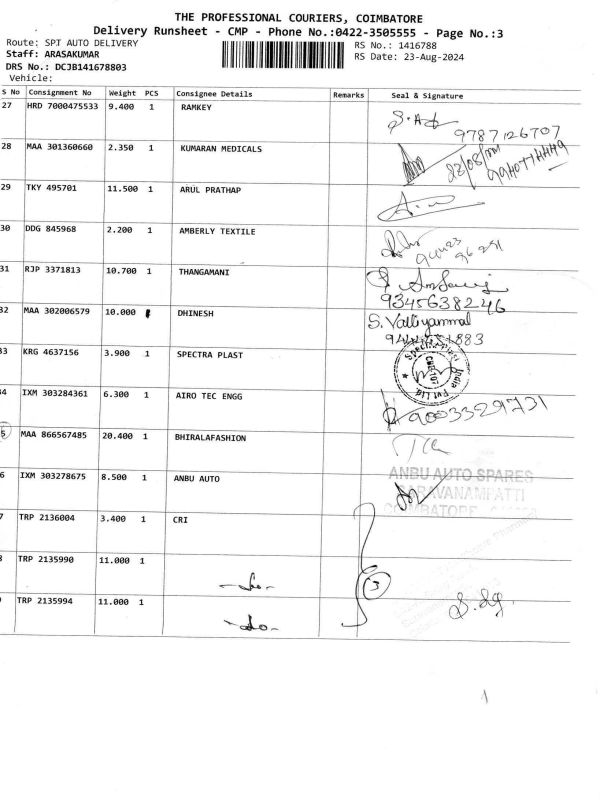 THE PROFESSIONAL COURIERS, COIMBATORE
Delivery Runsheet - CMP - Phone No.:0422-3505555 - Page No.:3
Route: SPT AUTO DELIVERY
RS No.: 1416788
Staff: ARASAKUMAR
RS Date: 23-Aug-2024
DRS No.: DCJB141678803
Vehicle:
S No Consignment No Weight PCS Consignee Details Remarks Seal & Signature
27 HRD 7000475533 9.400 1 RAMKEY
9787126707
28 MAA 301360660 2.350 1 KUMARAN MEDICALS
29 TKY 495701 11.500 1 ARUL PRATHAP
30 DDG 845968 2.200 1 AMBERLY TEXTILE
31 RJP 3371813 10.700 1 THANGAMANI
9345638246
32 MAA 302006579 10.000 DHINESH S. Valliyammal
33 KRG 4637156 3.900 1 SPECTRA PLAST
34 IXM 303284361 6.300 1 AIRO TEC ENGG 9003329731
5 MAA 866567485 20.400 1 BHIRALAFASHION
6 IXM 303278675 8.500 1 ANBU AUTO ANBU AUTO SPARES
SARAVANAMPATTI
COIMBATORE
7 TRP 2136004 3.400 1 CRI
TRP 2135990 11.000 1 -do- 3
TRP 2135994 11.000 1 -do-